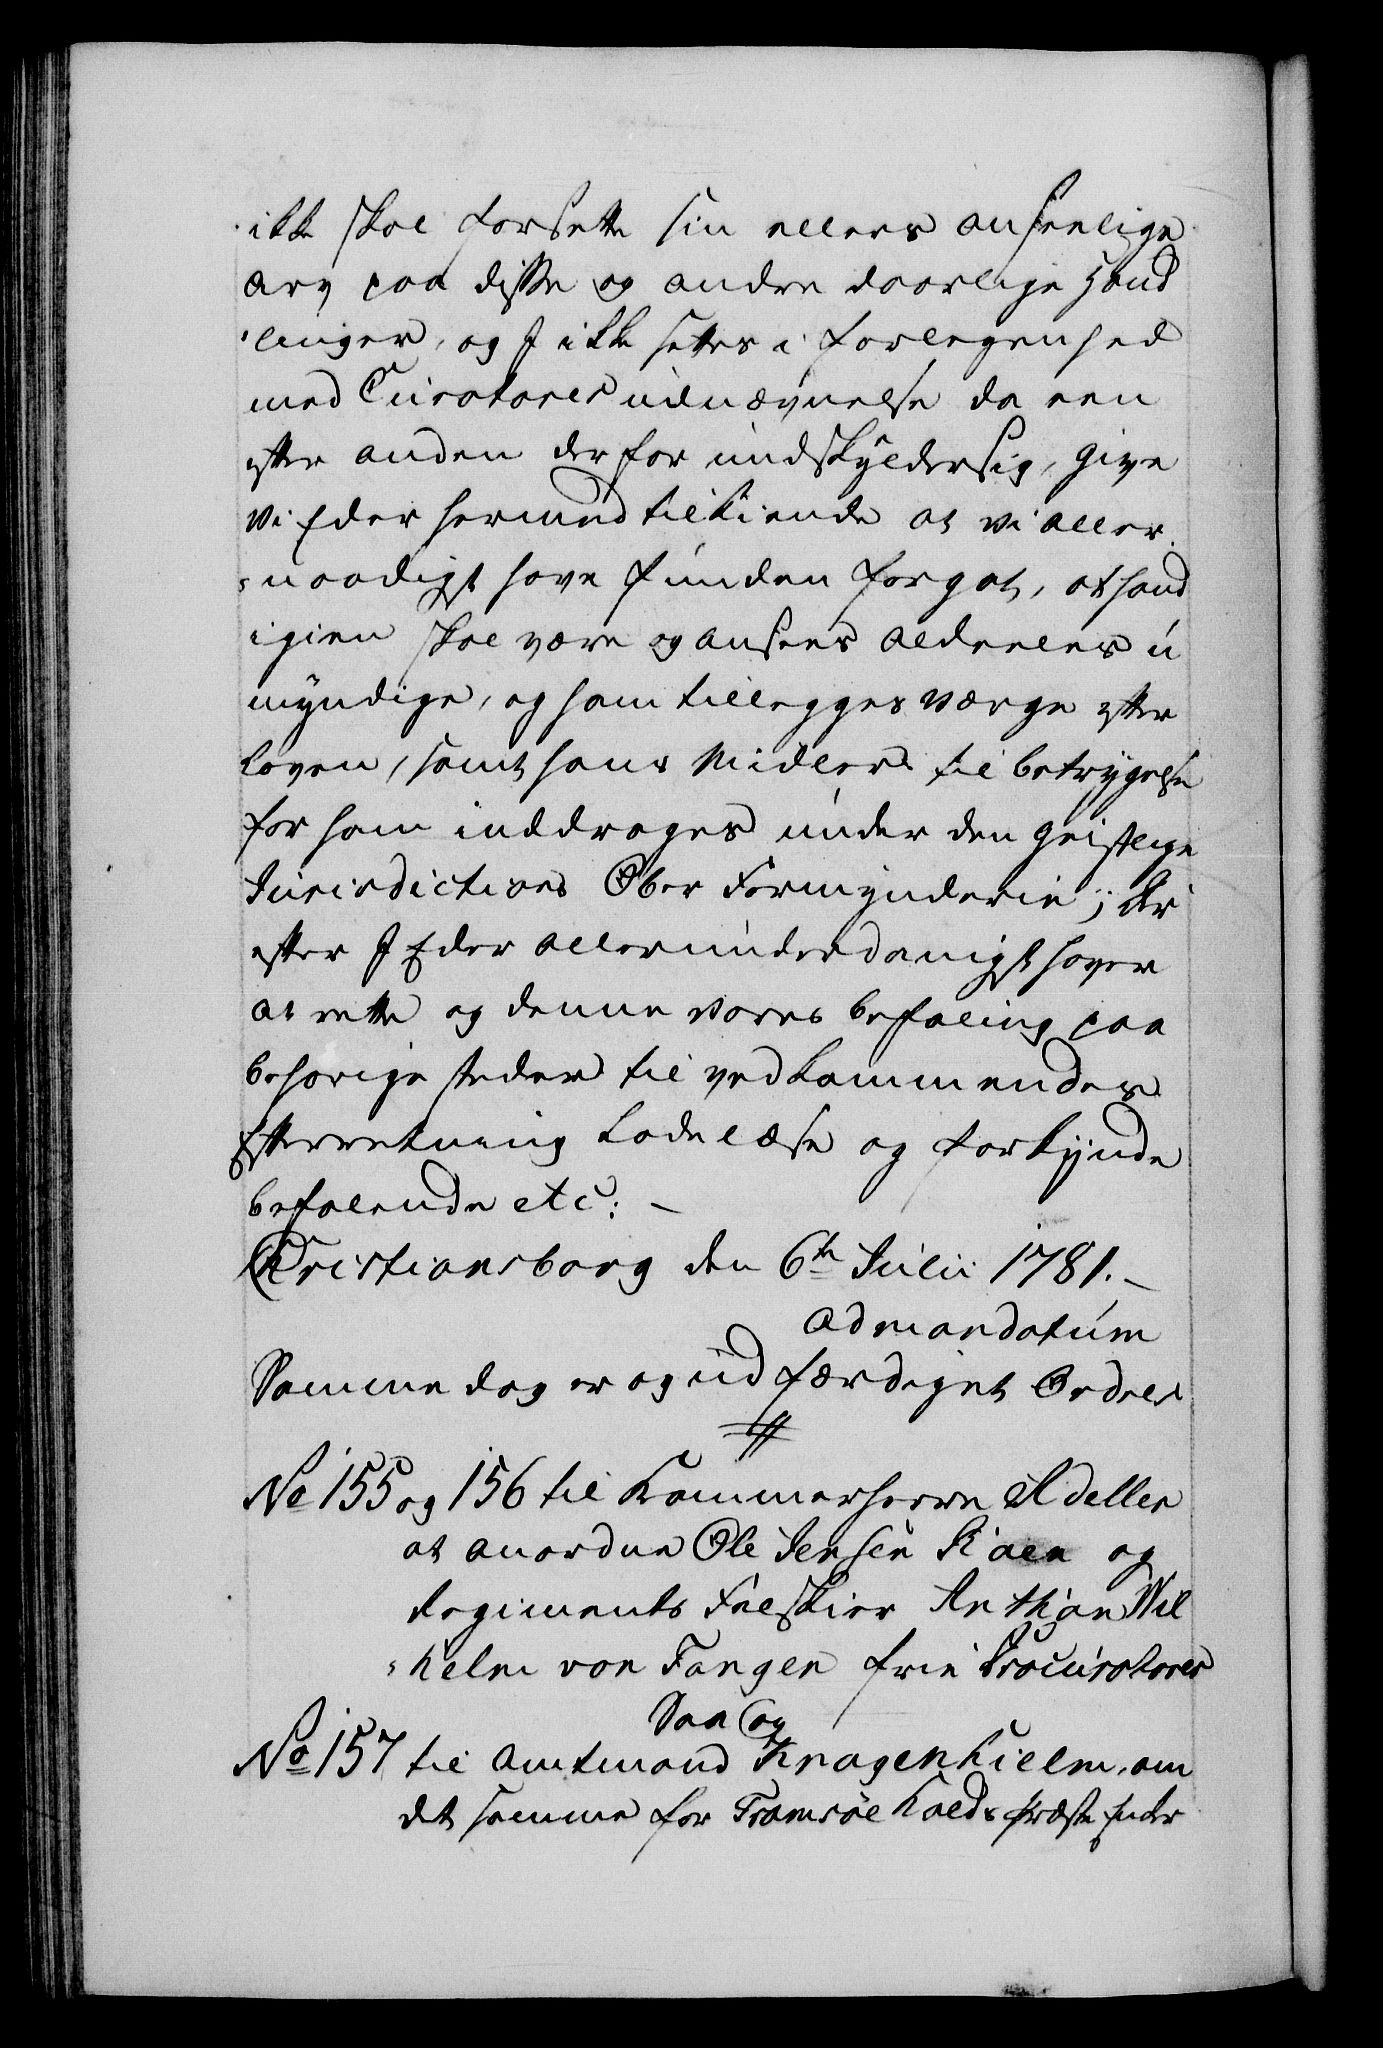 ikke skal forsette sin ellers anseelige
arv paa disse og andre daarlige Hand
linger, og I ikke settes i forlegenhed
med Curatores udnævnelse da een
efter anden derfor undskylder sig, give
vi Eder hermed tilkiende at vi aller,
naadigst have funden forgot, at hand
igien skal være og ansees aldeeles u
myndige, og ham tillegges værge efter
Loven, samt hans Midler til betrygelse
for ham inddrages under den geistlige
Jurisdictions Ober Formynderie; Der
efter I Eder allerunderdanigst haver
at rette og denne vores befaling paa
behørige steder til vedkommendes
Efterretning lade læse og forkynde
befalende etc: –
Christiansborg den 6te Julii 1781. –
ad mandatum
Samme dag er og udfærdiget Ordres
No 155 og 156 til Kammerherre Adeller
at anordne Ole Jensen og
Regiments Feltskier Anthon Wil
helm von Fangen frie Procuratores
Saa og
No 157 til Amtmand Kragenhielm, om
det samme for Tromsöe Kalds præste Enker